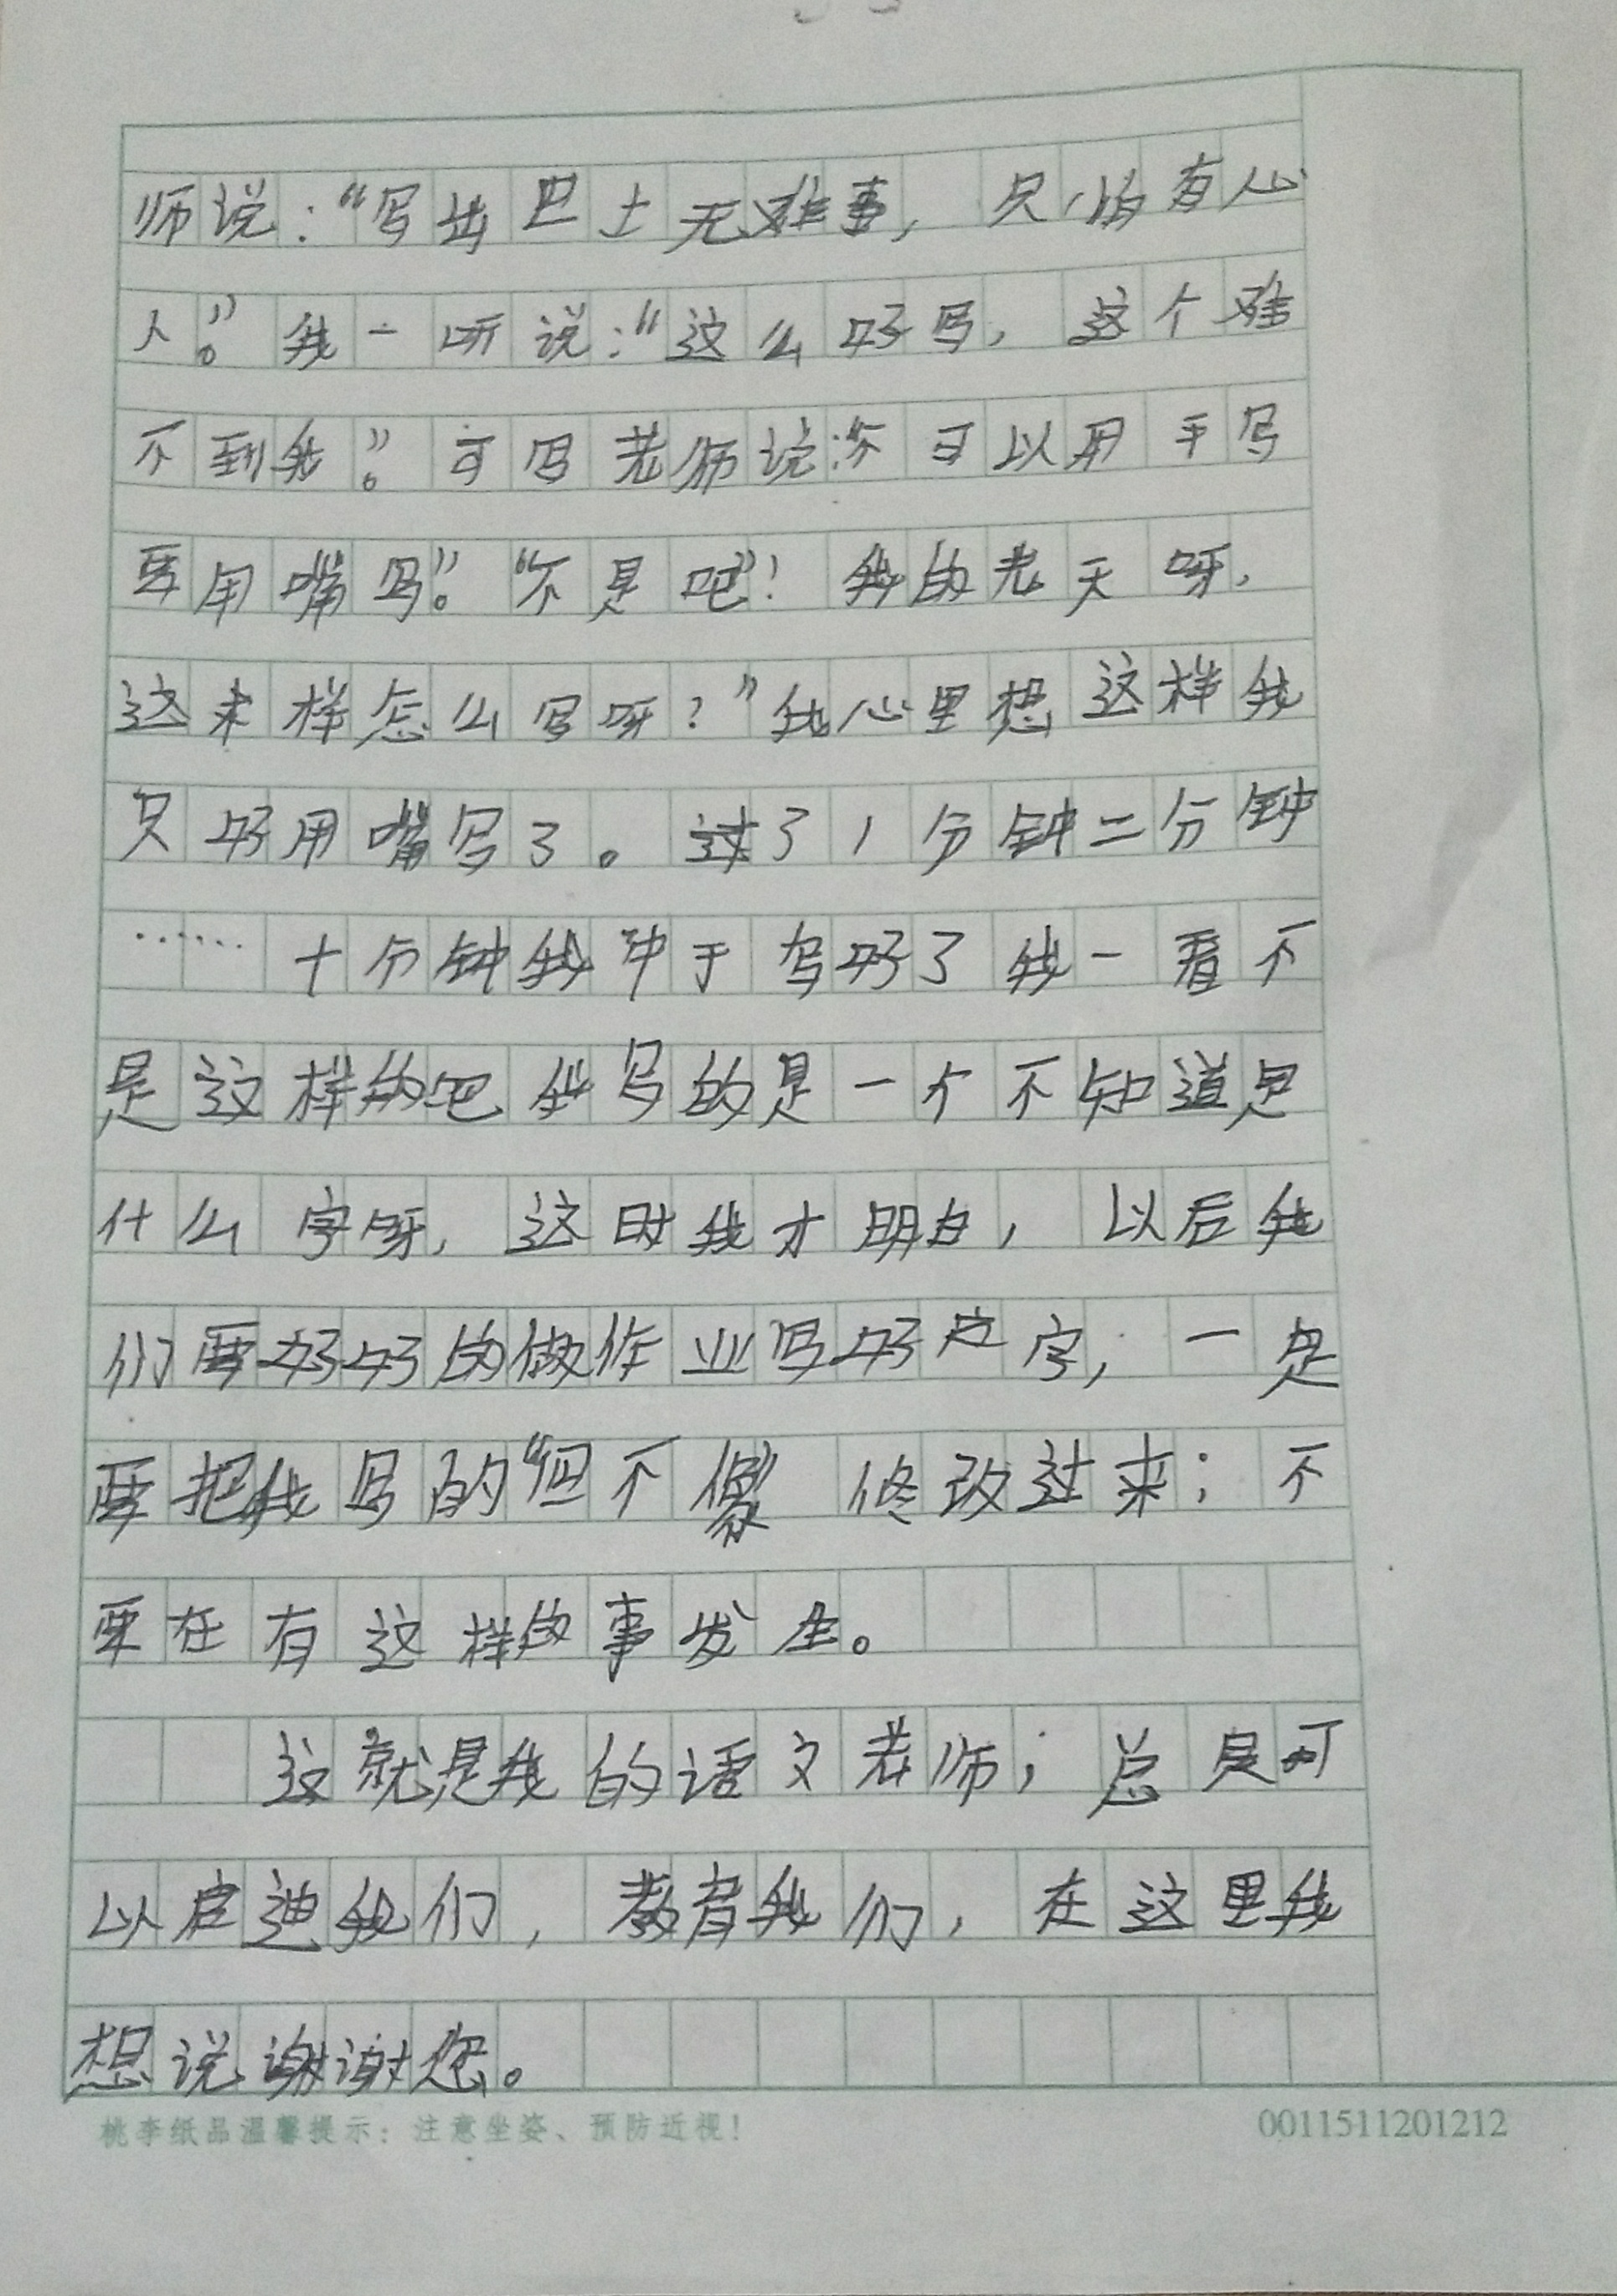 师说：“写出巴士无难事，只怕有心
人。”我一听说：“这么好写，这个难
不到我。”可写老师说：“不可以用手写
要用嘴写。”“不是吧”！我的老天呀，
这来样怎么写呀？”我心里想这样我
只好用嘴写了。过了1分钟二分钟
……十分钟我中于写好了我一看不
是这样的吧我写的是一个不知道思
什么字呀，这时我才明白，以后我
们要好好的做作业写好字，一是
要把我写的“但不像”修改过来；不
要在有这样的事发生。
这就是我的语文老师；总是可
以启迪我们，教育我们，在这里我
想说谢谢您。
桃李纸品温馨提示：注意坐姿、预防近视！
0011511201212